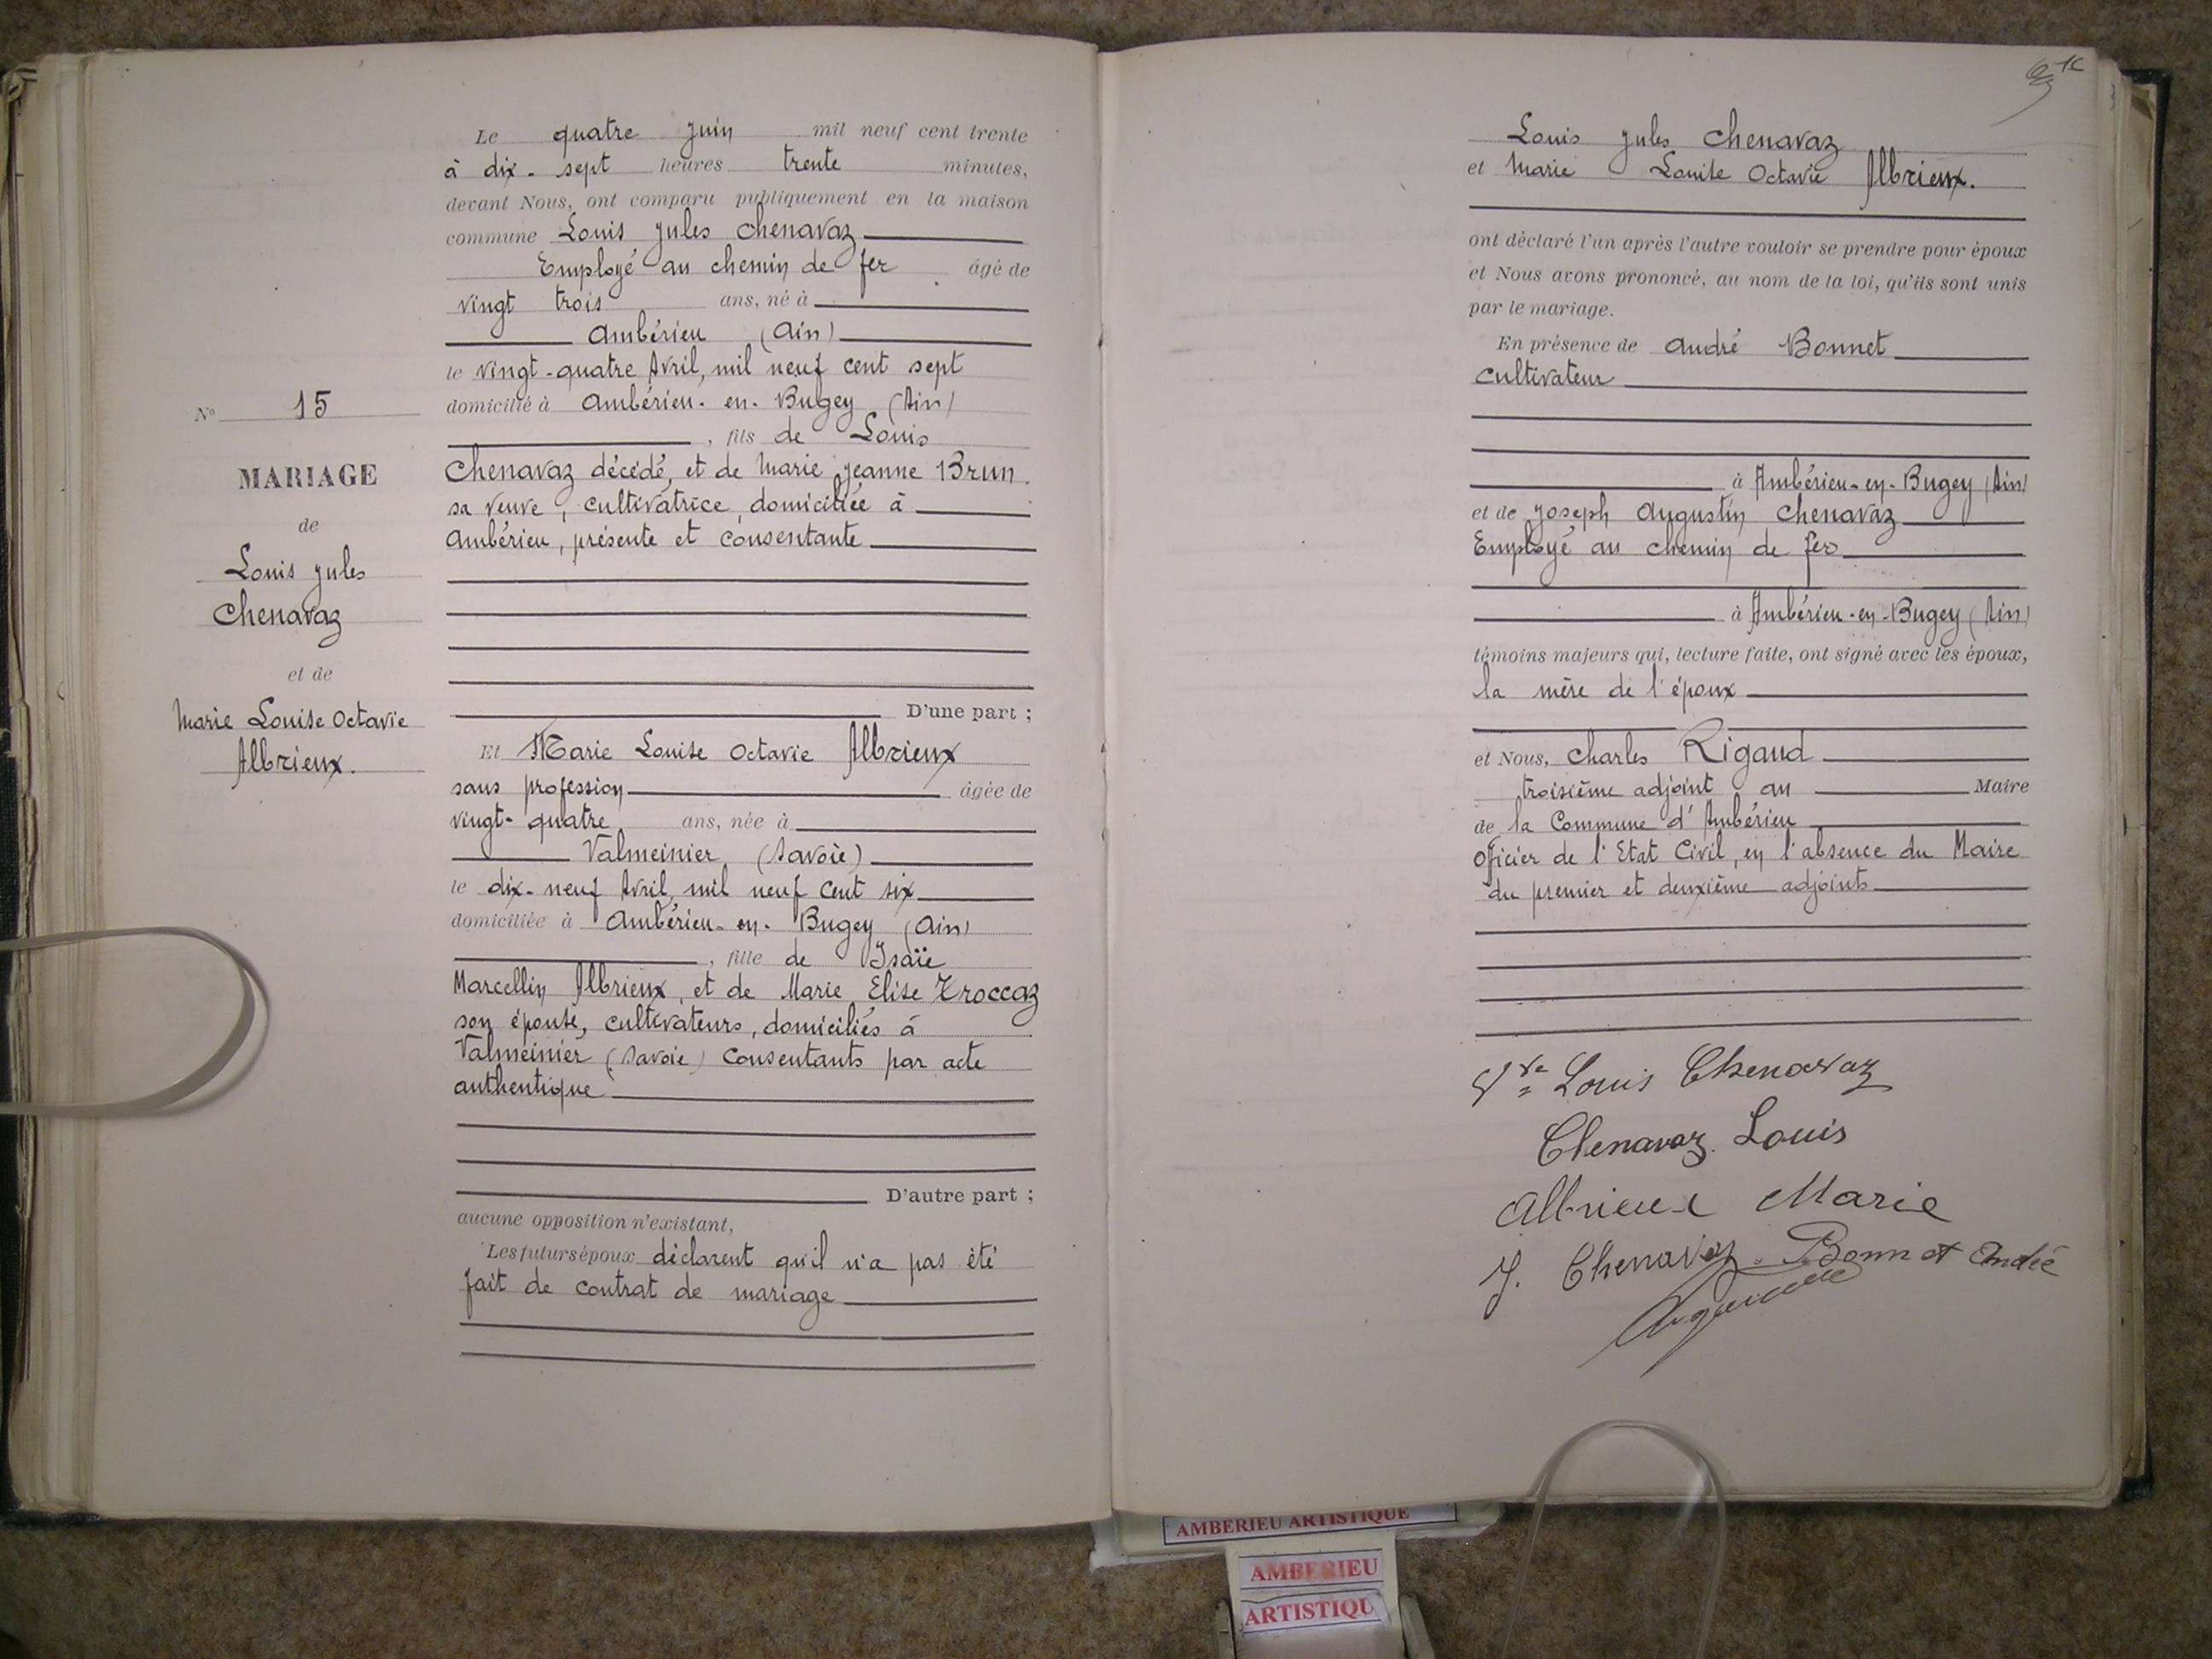 N° 15
MARIAGE
de
Louis Jules
Chenavaz
et de
Marie Louise Octavie
Albrieux.
Le quatre Juin mil neuf cent trente
à dix-sept heures trente minutes,
devant Nous, ont comparu publiquement en la maison
commune Louis Jules Chenavaz
Employé au chemin de fer âgé de
vingt trois ans, né à
Ambérieu (Ain)
le vingt-quatre Avril, mil neuf cent sept
domicilié à Ambérieu-en-Bugey (Ain)
, fils de Louis
Chenavaz décédé, et de Marie Jeanne Brun
sa veuve, cultivatrice, domiciliée à
Ambérieu, présente et consentante
D'une part ;
Et Marie Louise Octavie Albrieux
sans profession âgée de
vingt-quatre ans, née à
Valmeinier (Savoie)
le dix-neuf Avril, mil neuf cent six
domiciliée à Ambérieu-en-Bugey (Ain)
, fille de Isaïe
Marcellin Albrieux, et de Marie Elise Troccaz
son épouse, cultivateurs, domiciliés à
Valmeinier (Savoie) consentants par acte
authentique
D'autre part ;
aucune opposition n'existant,
Les futurs époux déclarent qu'il n'a pas été
fait de contrat de mariage
Louis Jules Chenavaz
et Marie Louise Octavie Albrieux.
ont déclaré l'un après l'autre vouloir se prendre pour époux
et Nous avons prononcé, au nom de la loi, qu'ils sont unis
par le mariage.
En présence de André Bonnet
cultivateur
à Ambérieu-en-Bugey (Ain)
et de Joseph Augustin Chenavaz
Employé au chemin de fer
à Ambérieu-en-Bugey (Ain)
témoins majeurs qui, lecture faite, ont signé avec les époux,
la mère de l'époux
et Nous, Charles Rigaud
troisième adjoint au Maire
de la Commune d'Ambérieu
Oficier de l'Etat Civil, en l'absence du Maire
du premier et deuxième adjoints
Vve Louis Chenavaz
Chenavaz Louis
Albrieux Marie
J. Chenavaz Bonnet André
AMBERIEU ARTISTIQUE
AMBERIEU
ARTISTIQU